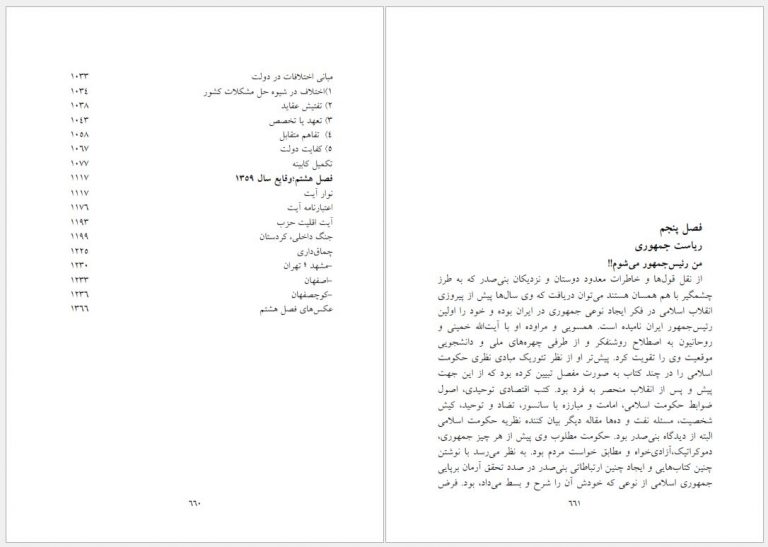 مبانی اختلافات در دولت ۱۰۳۳
۱)اختلاف در شیوه حل مشکلات کشور ۱۰۳۴
۲) تفتیش عقاید ۱۰۳۸
۳) تعهد یا تخصص ۱۰۴۳
۴) تفاهم متقابل ۱۰۵۸
۵) کفایت دولت ۱۰۶۷
تکمیل کابینه ۱۰۷۷
فصل هشتم؛وقایع سال ۱۳۵۹ ۱۱۱۷
نوار آیت ۱۱۱۷
اعتبارنامه آیت ۱۱۷۶
آیت اقلیت حزب ۱۱۹۳
جنگ داخلی، کردستان ۱۱۹۹
چماق‌داری ۱۲۲۵
-مشهد ؛ تهران ۱۲۳۰
-اصفهان ۱۲۳۳
-کوچصفهان ۱۲۳۶
عکس‌های فصل هشتم ۱۳۶۶
۶۶۰
فصل پنجم
ریاست جمهوری
من رئیس‌جمهور می‌شوم!!
از نقل قول‌ها و خاطرات معدود دوستان و نزدیکان بنی‌صدر که به طرز
چشمگیر با هم همسان هستند می‌توان دریافت که وی سال‌ها پیش از پیروزی
انقلاب اسلامی در فکر ایجاد نوعی جمهوری در ایران بوده و خود را اولین
رئیس‌جمهور ایران نامیده است. همسویی و مراوده او با آیت‌الله خمینی و
روحانیون به اصطلاح روشنفکر و از طرفی چهره‌های ملی و دانشجویی
موقعیت وی را تقویت کرد. پیش‌تر او از نظر تئوریک مبادی نظری حکومت
اسلامی را در چند کتاب به صورت مفصل تبیین کرده بود که از این جهت
پیش و پس از انقلاب منحصر به فرد بود. کتب اقتصادی توحیدی، اصول
ضوابط حکومت اسلامی، امامت و مبارزه با سانسور، تضاد و توحید، کیش
شخصیت، مسئله نفت و ده‌ها مقاله دیگر بیان کننده نظریه حکومت اسلامی
البته از دیدگاه بنی‌صدر بود. حکومت مطلوب وی پیش از هر چیز جمهوری،
دموکراتیک،آزادی‌خواه و مطابق خواست مردم بود. به نظر می‌رسد با نوشتن
چنین کتاب‌هایی و ایجاد چنین ارتباطاتی بنی‌صدر در صدد تحقق آرمان برپایی
جمهوری اسلامی از نوعی که خودش آن را شرح و بسط می‌داد، بود. فرض
۶۶۱